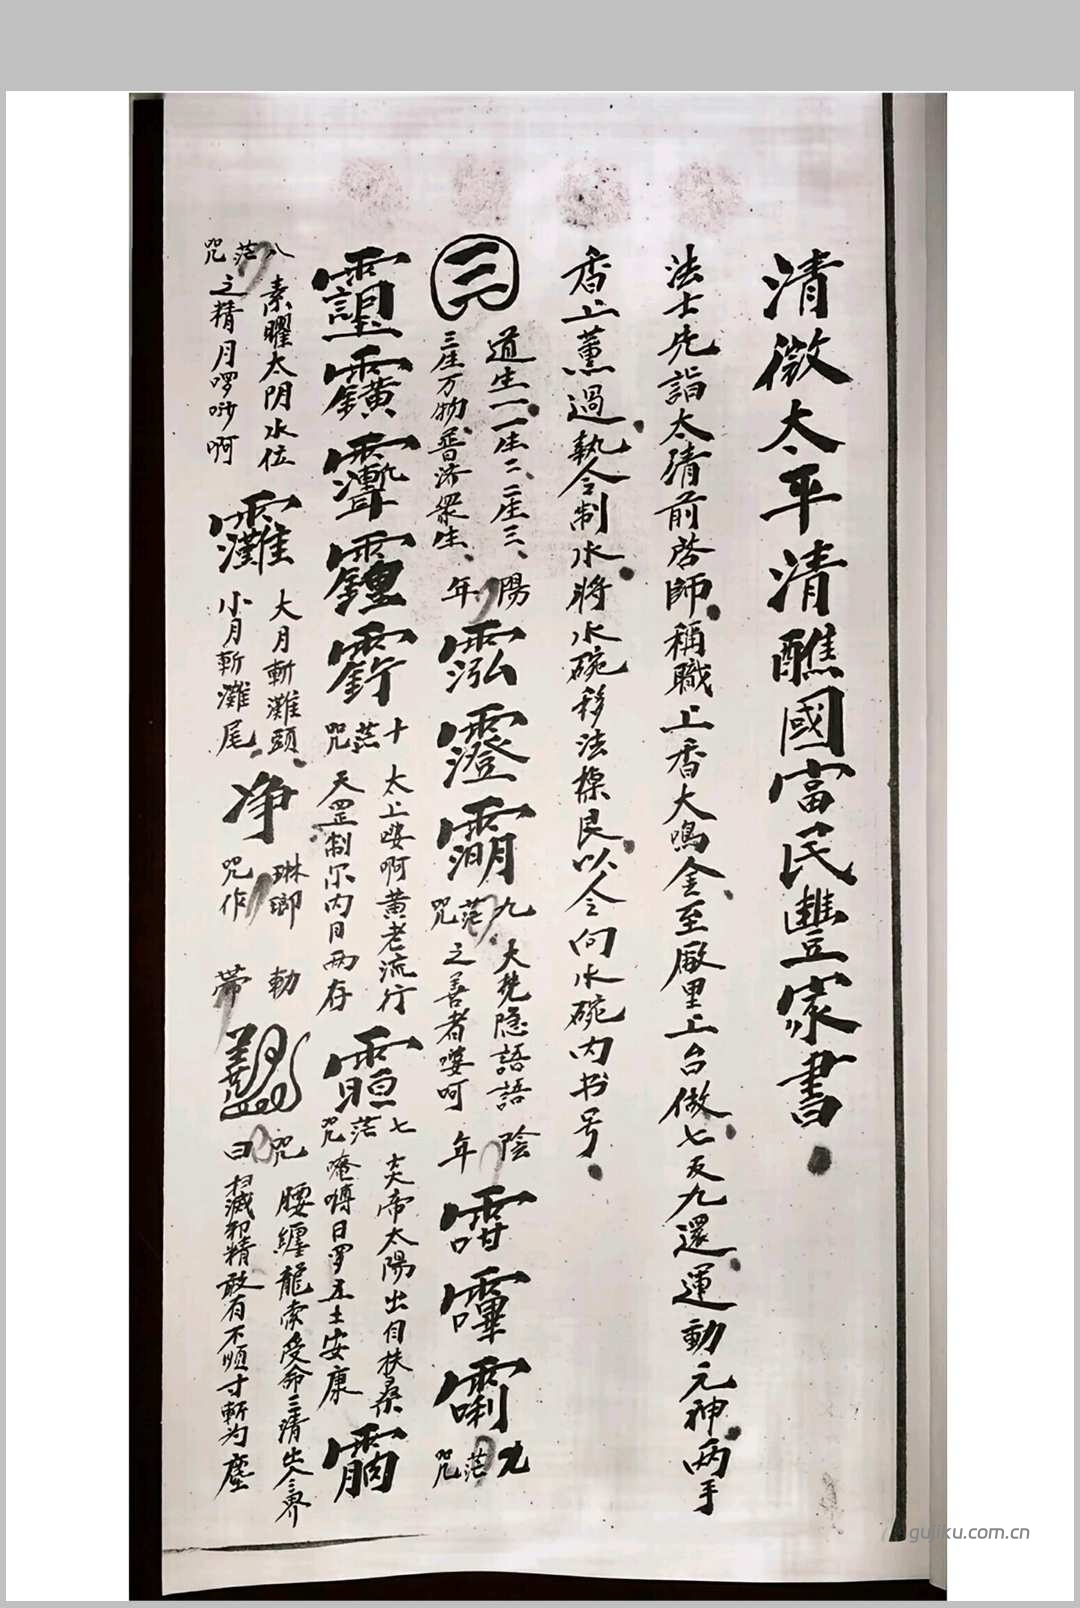 清微太平清醮國富民豐家書
法士先詣太清前啓師稱職上香大鳴金至廠里上台做七返九還運動元神两手
香上薰過執令制水將水碗移法樑艮以令向水碗内书号
三
道生一一生二二生三
三生万物普济眾生
陽年
九茫咒
大梵隐語語
之善者婁呵
陰年
九茫咒
十茫咒
太上婁啊黄老流行
天罡制尔内日两存
七茫咒
炎帝太陽出自扶桑
唵噂日罗五土安康
八茫咒
素曜太阴水位
之精月啰唦啊
大月斬灘頭
小月斬灘尾
净
琳瑯
咒作
勅
帶
咒曰
腰纏龍索受命三清出令界
扫滅邪精敢有不順寸斬为塵
gujiku.com.cn